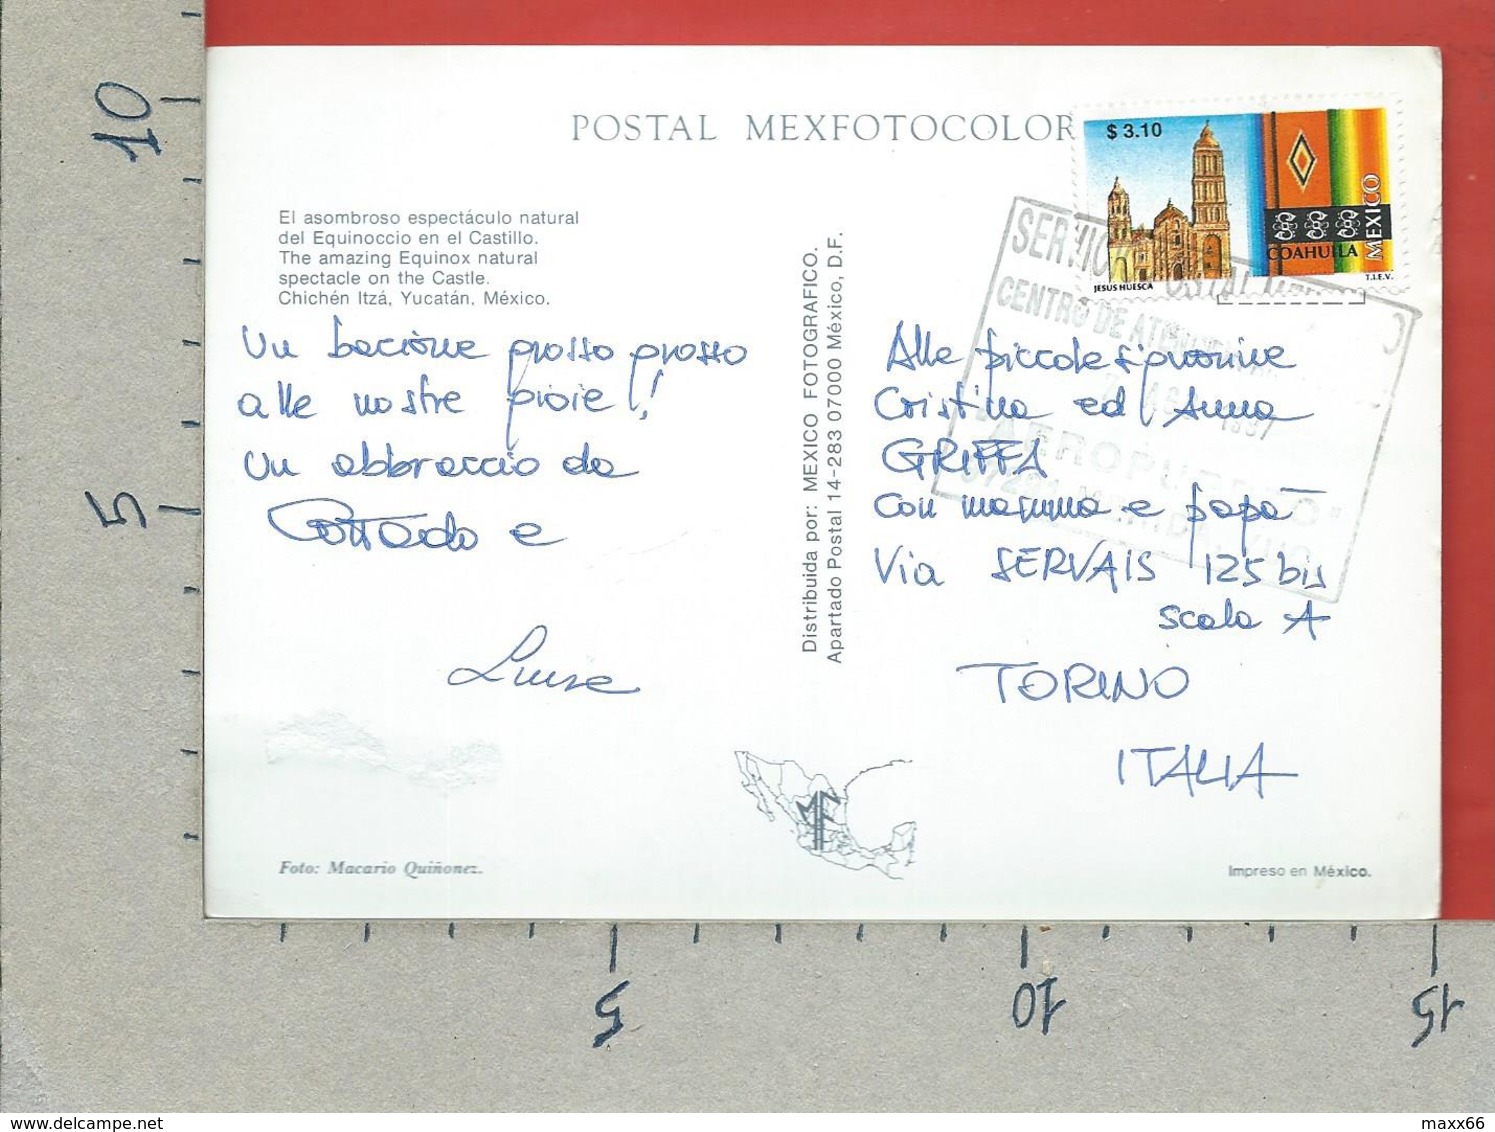 POSTAL MEXFOTOCOLOR
$ 3.10
COAHUILA
MEXICO
JESUS HUESCA
T.I.E.V.
El asombroso espectáculo natural
del Equinoccio en el Castillo.
The amazing Equinox natural
spectacle on the Castle.
Chichén Itzá, Yucatán, México.
Un bacione grosso grosso
alle nostre gioie!
Un abbraccio da
e
Luisa
Distribuida por: MEXICO FOTOGRAFICO.
Apartado Postal 14-283 07000 México, D.F.
SERVICIO POSTAL
CENTRO DE
1997
AEROPUERTO
Alle piccole signorine
Cristina ed Anna
GRIFFA
con mamma e papà
Via SERVAIS 125 bis
scala A
TORINO
ITALIA
MF
Foto: Macario Quiñonez.
Impreso en México.
10
5
5
10
15
delcampe.net
maxx66